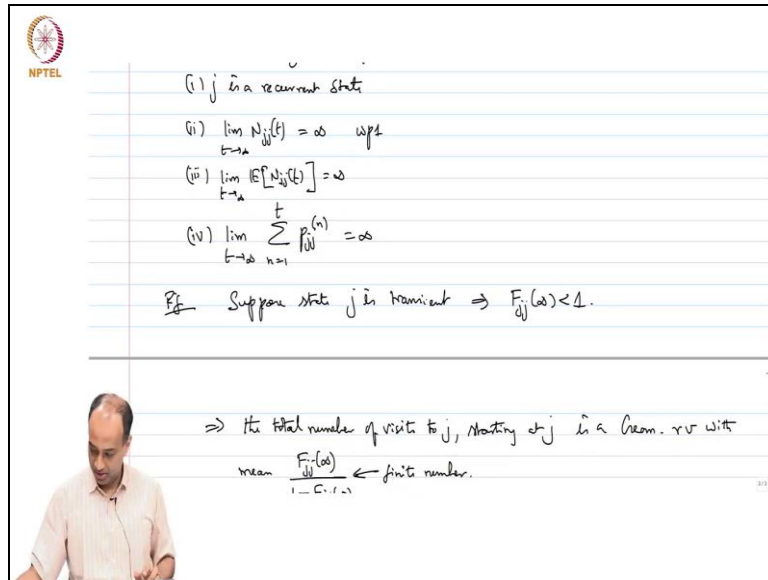 NPTEL
(i) j is a recurrent state
(ii) lim_{t→∞} N_{jj}(t) = ∞ wp1
(iii) lim_{t→∞} 𝔼[N_{jj}(t)] = ∞
(iv) lim_{t→∞} ∑_{n=1}^{t} p_{jj}^{(n)} = ∞
Pf Suppose state j is transient ⇒ F_{jj}(∞) < 1.
⇒ the total number of visits to j, starting at j is a Geom. rv with
mean F_{jj}(∞) ← finite number.